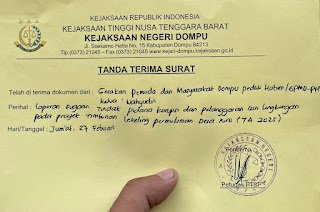 KEJAKSAAN REPUBLIK INDONESIA
KEJAKSAAN TINGGI NUSA TENGGARA BARAT
KEJAKSAAN NEGERI DOMPU
Jl. Soekarno Hatta No. 15 Kabupaten Dompu 84213
Tlp.(0373) 21045 - Fax.(0373) 21045 www.kejari-dompu.kejaksaan.go.id
TANDA TERIMA SURAT
Telah di terima dokumen dari : Gerakan Pemuda dan Masyarakat Dompu peduli Hukum
Wahyudin
Perihal : Laporan Dugaan Tindak Pidana korupsi dan pelanggaran izin lingkungan
pada projek Timbunan Leveling permukiman Desa (TA 2025)
Hari/Tanggal : Jum'at, 27
KEJAKSAAN NEGERI
Petugas PTSP